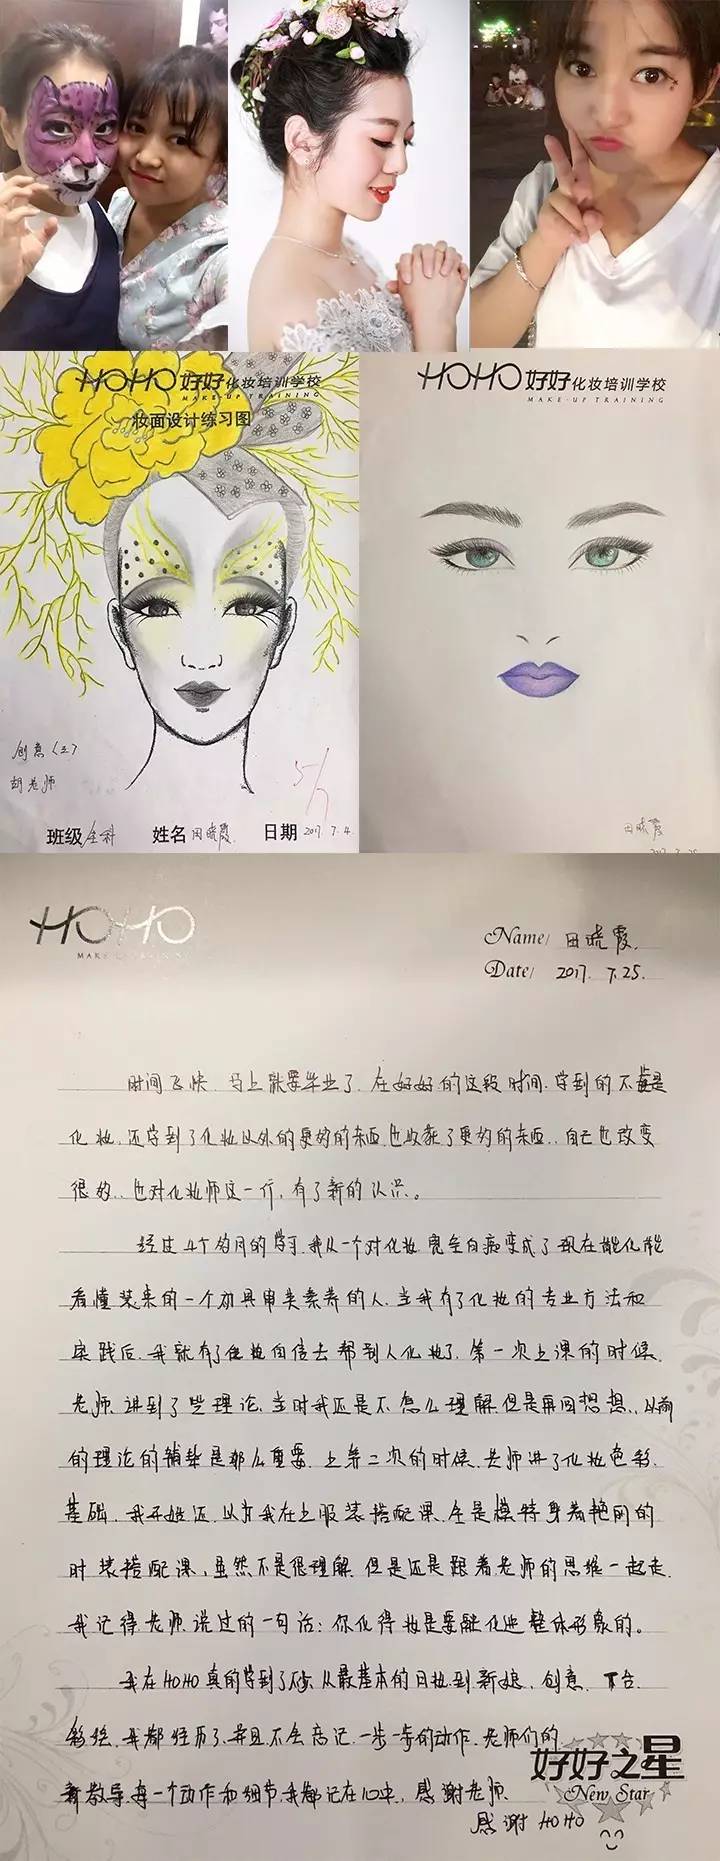 HOHO 好好化妆培训学校
MAKE-UP TRAINING
妆面设计练习图
创意(五)
胡老师
5/7
班级 全科 姓名 田晓霞 日期 2017.7.4
HOHO 好好化妆培训学校
MAKE-UP TRAINING
田晓霞
2017.7.25
HOHO
MAKE-UP TRAINING
Name/ 田晓霞.
Date/ 2017. 7.25.
时间飞快.马上就要毕业了.在好好的这段时间.学到的不单是
化妆.还学到了化妆以外的更多的东西.也收获了更多的东西..自己也改变
很多..也对化妆师这一行,有了新的认识。
经过4个多月的学习.我从一个对化妆完全白痴变成了现在能化能
看懂妆来的一个初具审美素养的人.当我有了化妆的专业方法和
实践后.我就有了化妆自信去帮别人化妆了.第一次上课的时候.
老师.讲到了些理论.当时我还是不怎么理解.但是再回想想..以前
的理论的铺垫是那么重要.上第二次的时候.老师讲了化妆色彩.
基础.我开始还.以前我在上服装搭配课.全是模特身着艳丽的
时装搭配课,虽然不是很理解.但是还是跟着老师的思维一起走.
我记得老师说过的一句话:你化得妆是要融化进整体形象的。
我在HOHO真的学到了很多从最基本的日妆.到新娘、创意、T台.
彩绘.我都经历了.并且不会忘记.一步一步的动作.老师们的
教导.每一个动作和细节.我都记在心中,感谢老师.
感谢HOHO
好好之星
New Star